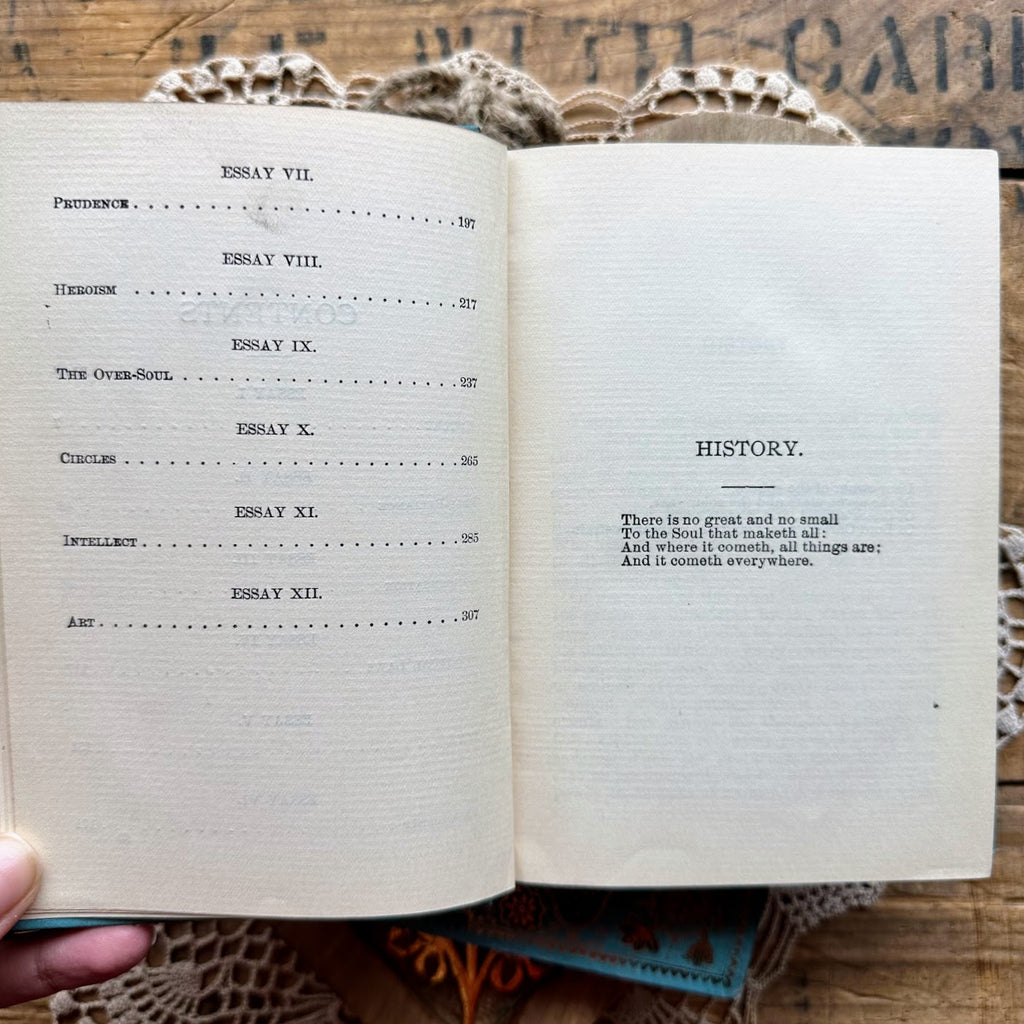 ESSAY VII.
PRUDENCE . . . . . . . . . . . . . . . . . . . . . . . 197
ESSAY VIII.
HEROISM . . . . . . . . . . . . . . . . . . . . . . . 217
ESSAY IX.
THE OVER-SOUL . . . . . . . . . . . . . . . . . . . 237
ESSAY X.
CIRCLES . . . . . . . . . . . . . . . . . . . . . . . 265
ESSAY XI.
INTELLECT . . . . . . . . . . . . . . . . . . . . . . 285
ESSAY XII.
ART . . . . . . . . . . . . . . . . . . . . . . . . . 307
HISTORY.
There is no great and no small
To the Soul that maketh all:
And where it cometh, all things are;
And it cometh everywhere.